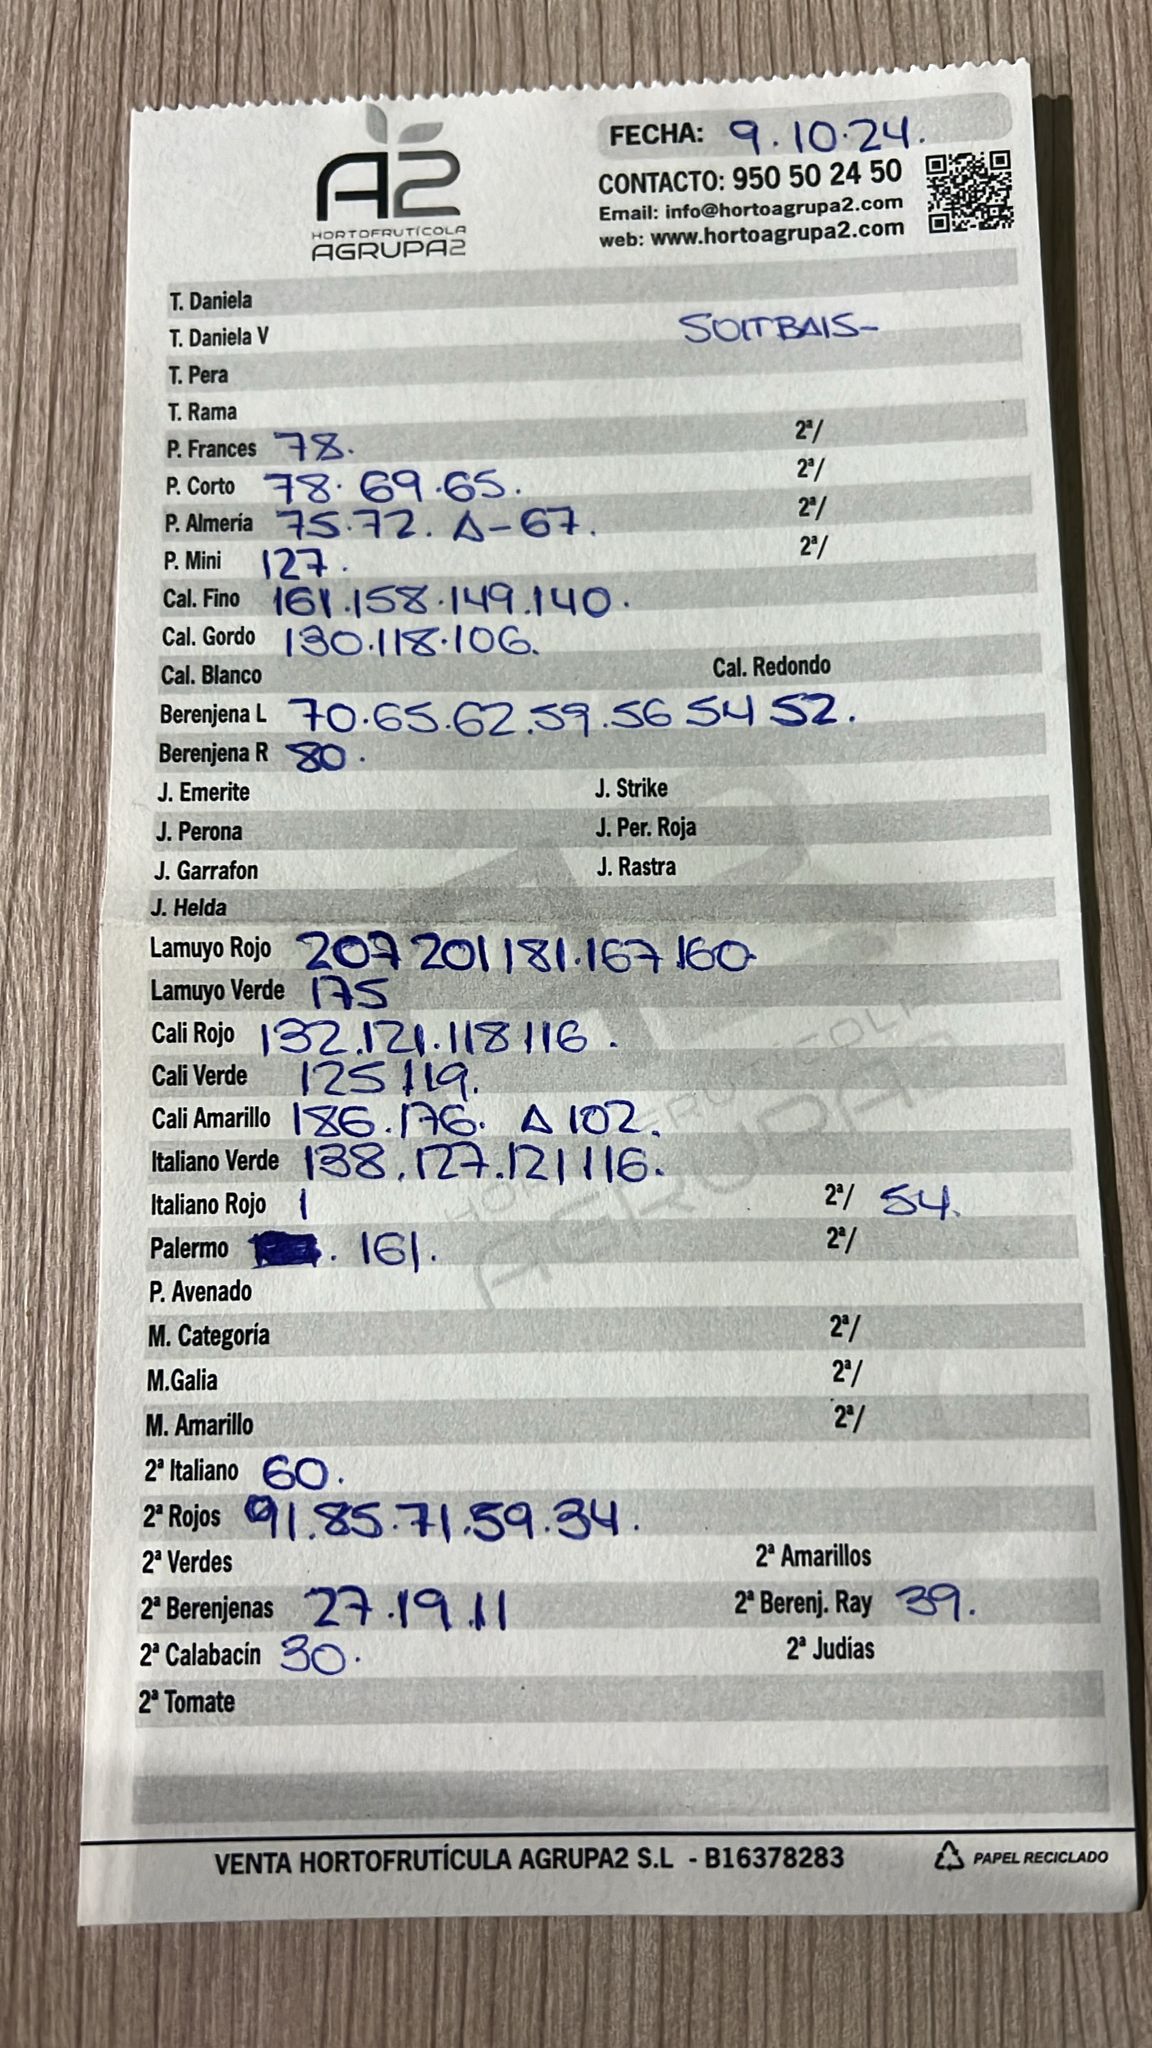 A2
HORTOFRUTÍCOLA
AGRUPA2
FECHA: 9.10.24.
CONTACTO: 950 50 24 50
Email: info@hortoagrupa2.com
web: www.hortoagrupa2.com
T. Daniela
T. Daniela V
T. Pera
T. Rama
P. Frances 78. 2ª/
P. Corto 78. 69.65. 2ª/
P. Almería 75.72. Δ-67. 2ª/
P. Mini 127. 2ª/
Cal. Fino 161.158.149.140.
Cal. Gordo 130.118.106.
Cal. Blanco Cal. Redondo
Berenjena L 70.65.62.59.56 54 52.
Berenjena R 80.
J. Emerite J. Strike
J. Perona J. Per. Roja
J. Garrafon J. Rastra
J. Helda
Lamuyo Rojo 207 201 181.167 160.
Lamuyo Verde 175
Cali Rojo 132.121.118 116.
Cali Verde 125 119.
Cali Amarillo 186.176. Δ 102.
Italiano Verde 138.127.121 116.
Italiano Rojo 1 2ª/ 54.
Palermo . 161. 2ª/
P. Avenado
M. Categoría 2ª/
M.Galia 2ª/
M. Amarillo 2ª/
2ª Italiano 60.
2ª Rojos 91.85.71.59.34.
2ª Verdes 2ª Amarillos
2ª Berenjenas 27.19.11 2ª Berenj. Ray 39.
2ª Calabacín 30. 2ª Judías
2ª Tomate
VENTA HORTOFRUTÍCULA AGRUPA2 S.L - B16378283 PAPEL RECICLADO